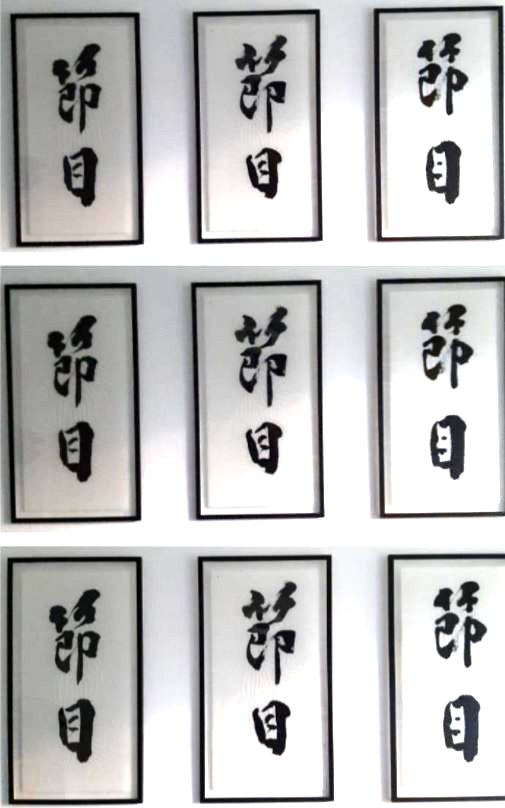 節目
節目
節目
節目
節目
節目
節目
節目
節目